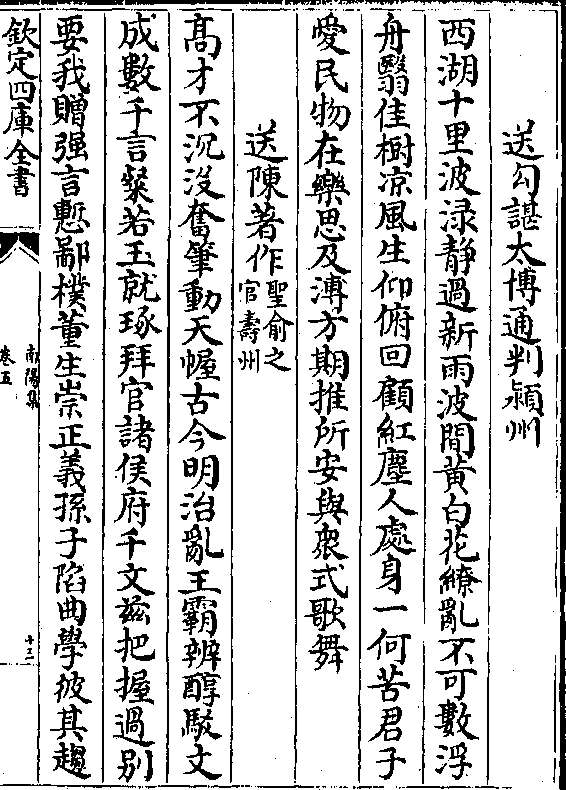 送勾諶太博通判潁州
西湖十里波淥靜過新雨波間黃白花繚亂不可數浮
舟翳佳樹凉風生仰俯回顧紅塵人處身一何苦君子
愛民物在樂思及溥方期推所安與衆式歌舞
送陳著作聖俞之官壽州
高才不沉没奮筆動天幄古今明治亂王霸辨醇駁文
成數千言粲若玉就琢拜官諸侯府千文茲把握過别
要我贈强言慙鄙樸董生崇正義孫子陷曲學彼其趨
欽定四庫全書
南陽集
卷五
十三